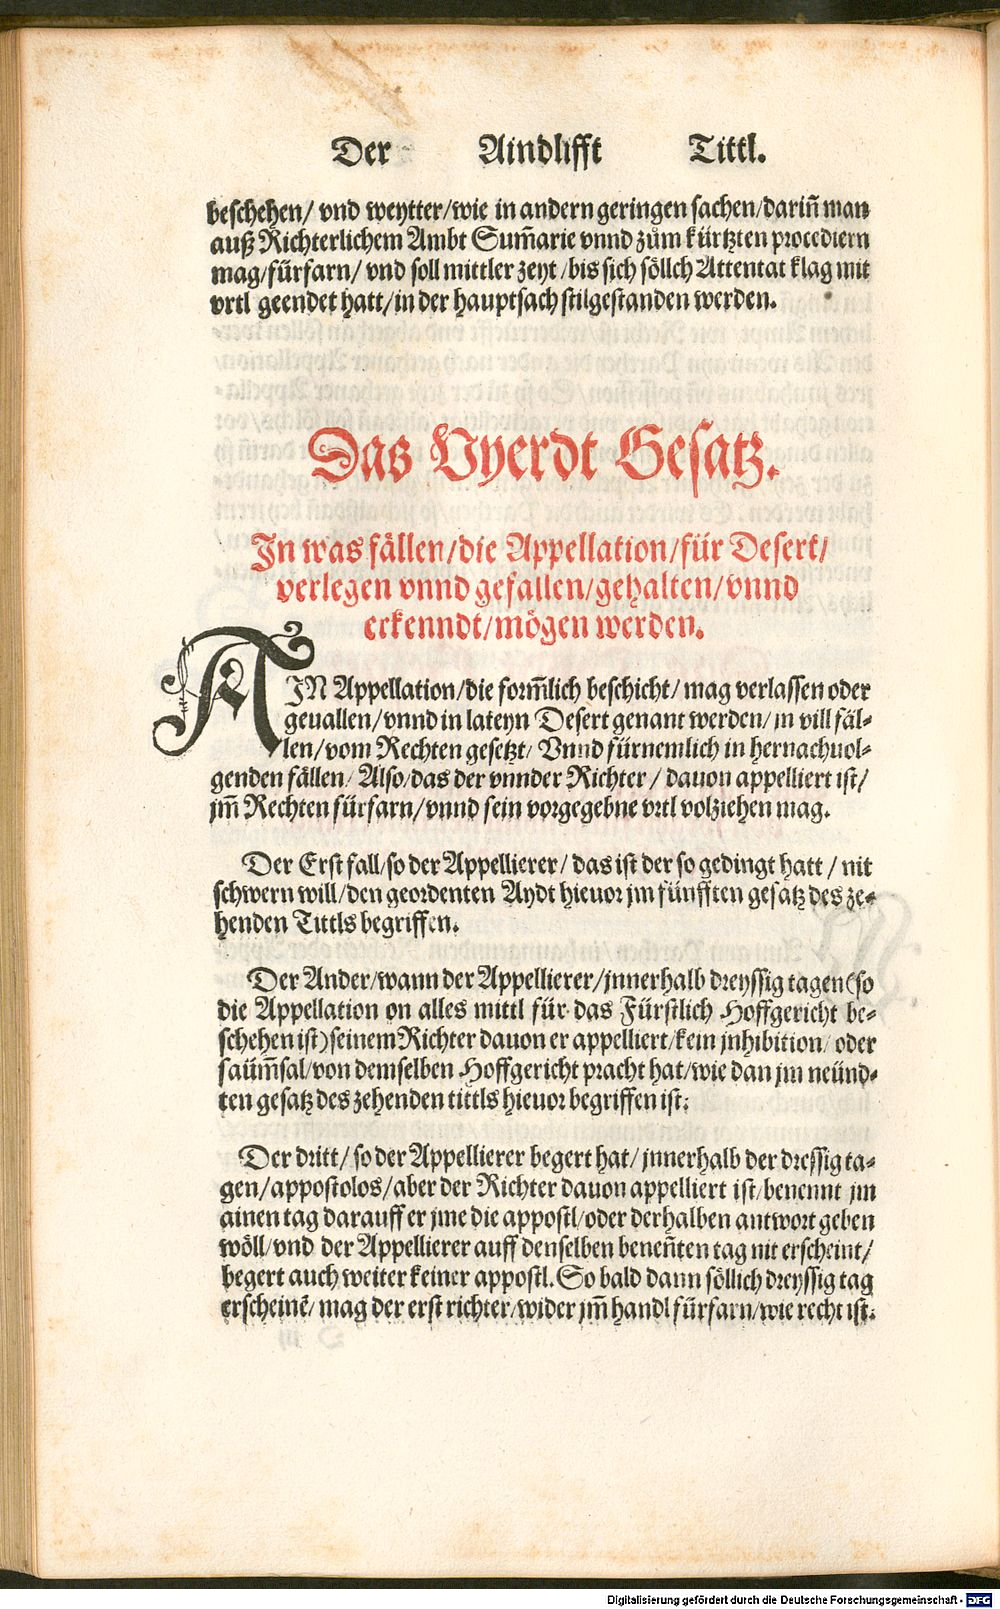 Der Aindlifft Tittl.
beschehen/ vnd weytter/wie in andern geringen sachen/dariñ man
auß Richterlichem Ambt Sum̃arie vnnd zům kürtzten procediern
mag/fürfarn/ vnd soll mittler zeyt/bis sich söllch Attentat klag mit
vrtl geendet hatt/in der hauptsach stilgestanden werden.
Das Vyerdt Gesatz.
In was fällen/die Appellation/für Desert/
verlegen vnnd gefallen/gehalten/vnnd
erkenndt/mögen werden.
AIN Appellation/die form̃lich beschicht/ mag verlassen oder
geuallen/vnnd in lateyn Desert genant werden/in vill fäl-
len/vom Rechten gesetzt/ Vnnd fürnemlich in hernachuol-
genden fällen/ Also/das der vnnder Richter/ dauon appelliert ist/
jm̃ Rechten fürfarn/vnnd sein vorgegebne vrtl volziehen mag.
Der Erst fall/so der Appellierer/ das ist der so gedingt hatt/ nit
schwern will/den geordenten Aydt hieuor jm fünfften gesatz des ze-
henden Tittls begriffen.
Der Ander/wann der Appellierer/jnnerhalb dreyssig tagen(so
die Appellation on alles mittl für das Fürstlich Hoffgericht be-
schehen ist)seinem Richter dauon er appelliert/kein jnhibition/ oder
saüm̃sal/von demselben Hoffgericht pracht hat/wie dan jm neünd-
ten gesatz des zehenden tittls hieuor begriffen ist:
Der dritt/ so der Appellierer begert hat/ jnnerhalb der dressig ta-
gen/appostolos/aber der Richter dauon appelliert ist/benennt jm
ainen tag darauff er jme die appostl/oder derhalben antwort geben
wöll/vnd der Appellierer auff denselben beneñten tag nit erscheint/
begert auch weiter keiner appostl. So bald dann söllich dreyssig tag
erscheinē/ mag der erst richter/wider jm̃ handl fürfarn/wie recht ist:
Digitalisierung gefördert durch die Deutsche Forschungsgemeinschaft - DFG